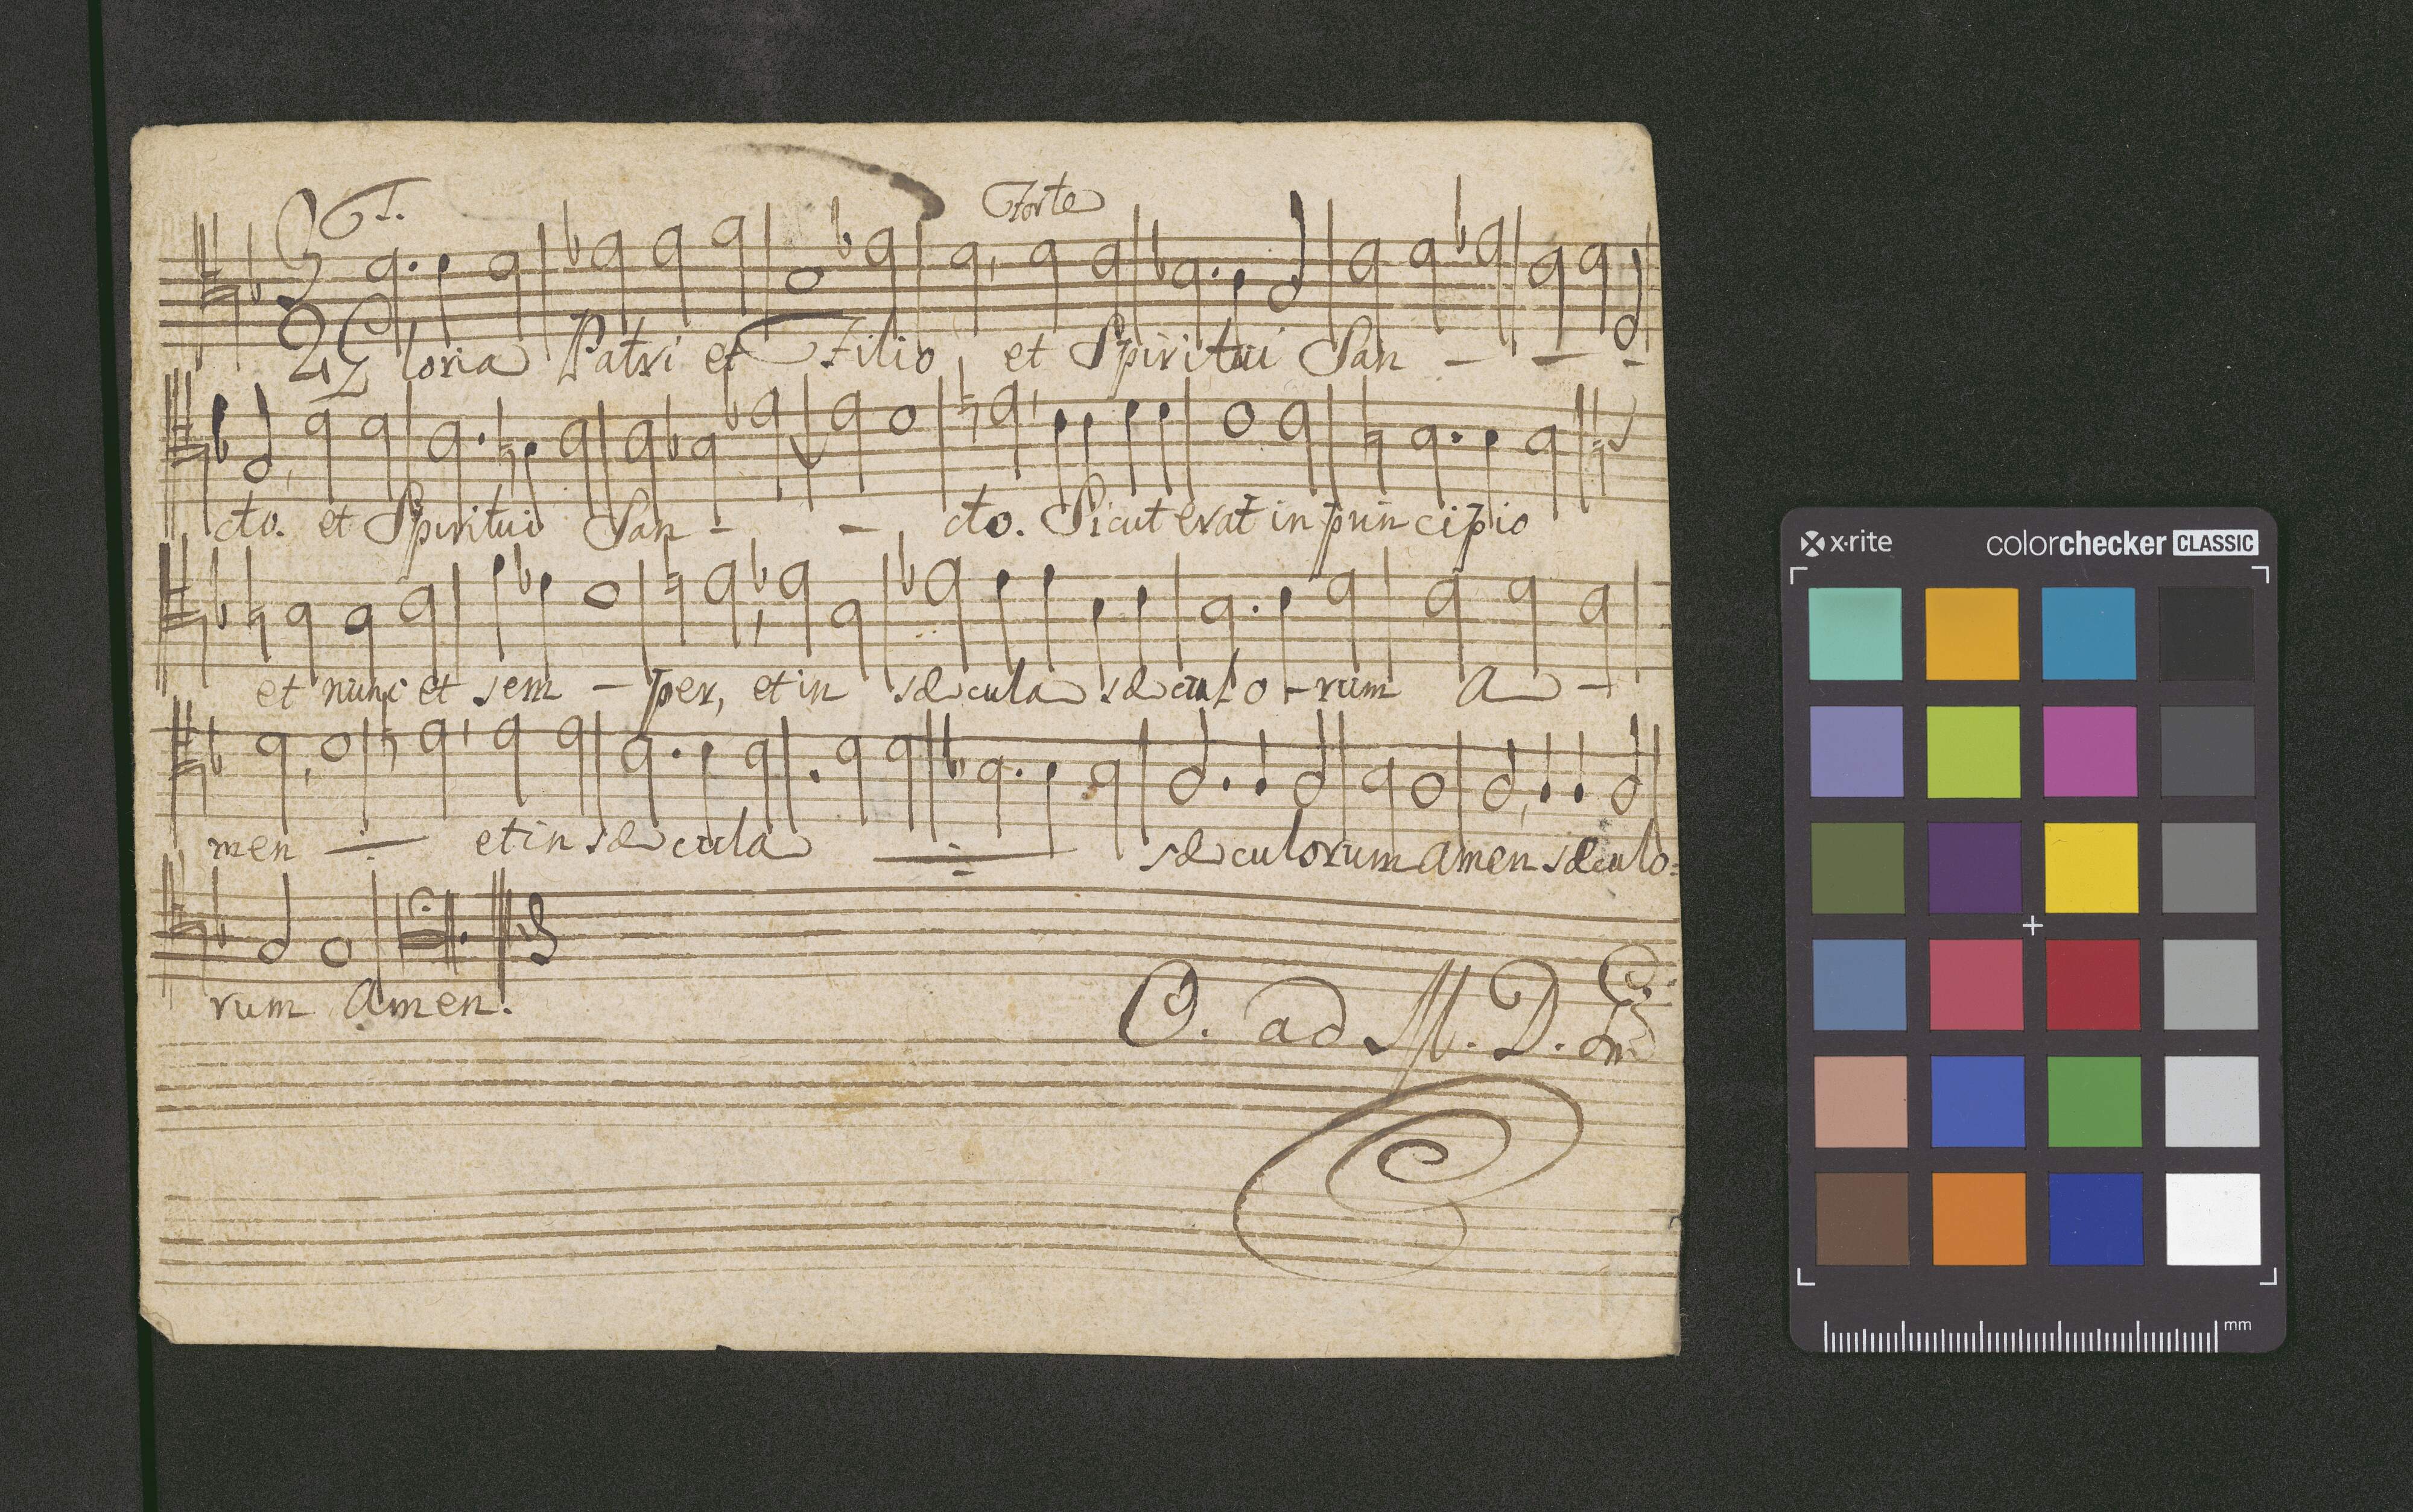 T. Forte
3
2 Gloria Patri et Filio et Spiritui San - - -
cto. et Spiritui San - - cto. Sicut erat in principio
et nunc et sem - per, et in sæcula sæculo - rum A -
men et in sæcula sæculorum amen sæculo=
rum Amen.
O. ad M. D. G.
x·rite colorchecker CLASSIC
mm